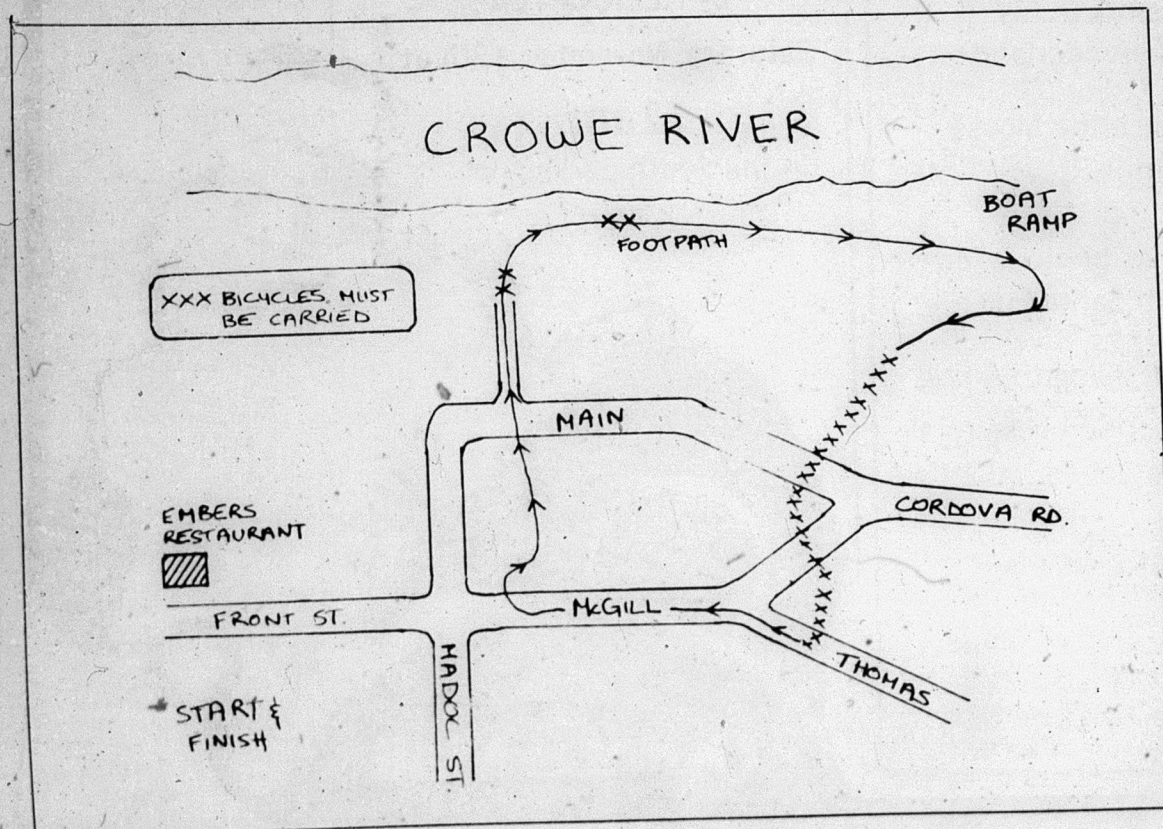 CROWE RIVER
BOAT
RAMP
FOOTPATH
XXX BICYCLES MUST
BE CARRIED
MAIN
CORDOVA RD.
EMBERS
RESTAURANT
FRONT ST.
McGILL
THOMAS
MADOC ST.
START &
FINISH